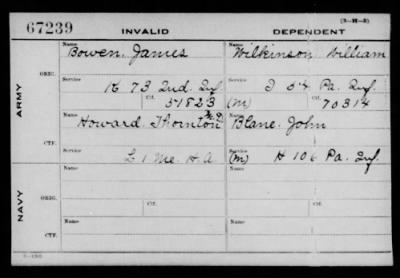 67239
(3-H-3)
INVALID DEPENDENT
ARMY
ORIG.
Name Bowen, James
Name Wilkinson William
Service K 73 Ind. Inf
Ctf. 51823
Service I 54 Pa. Inf.
(m) Ctf. 70314
CTF.
Name Howard Thornton
Name Blane, John
Service L 1 Me. H. A.
Service (m) H 106 Pa. Inf.
NAVY
ORIG.
Name
Name
Service Ctf.
Service Ctf.
CTF.
Name
Name